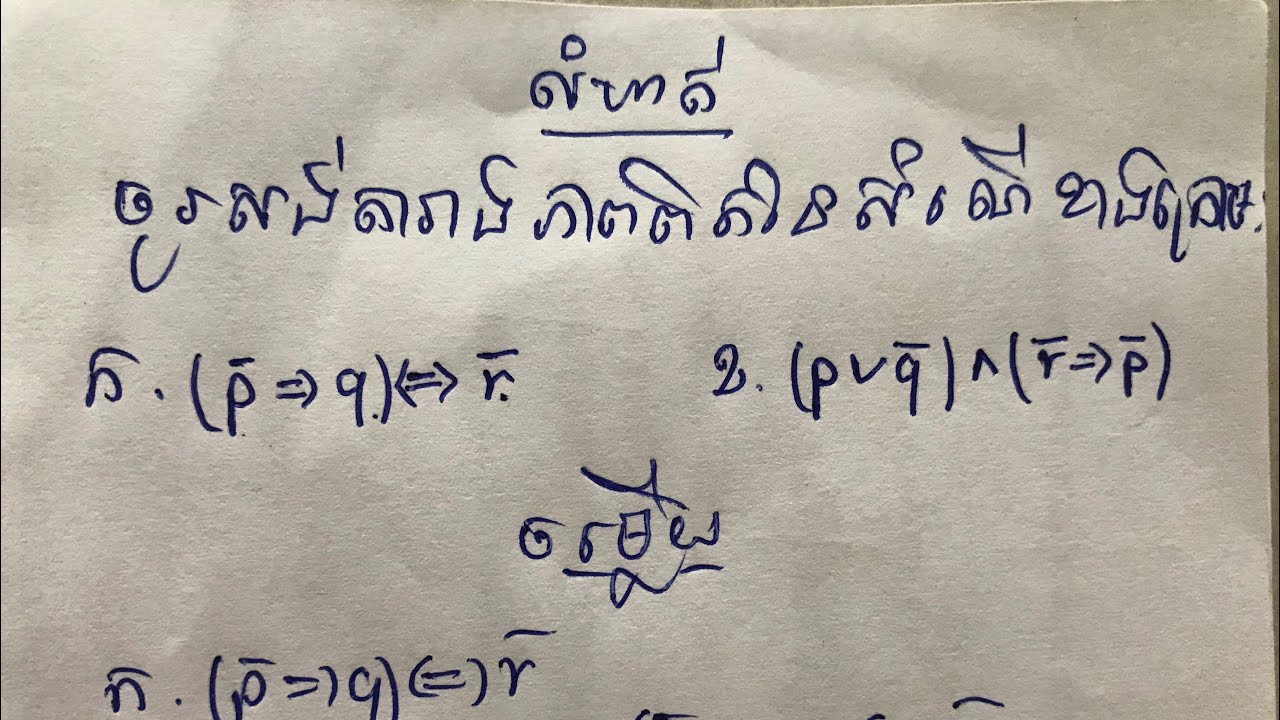 លំហាត់
ចូរសង់តារាងភាពពិតនៃសំណើខាងក្រោម:
ក. (p̄ => q) <=> r̄. ខ. (p ∨ q̄) ∧ (r̄ => p̄)
ចម្លើយ
ក. (p̄ => q) <=> r̄